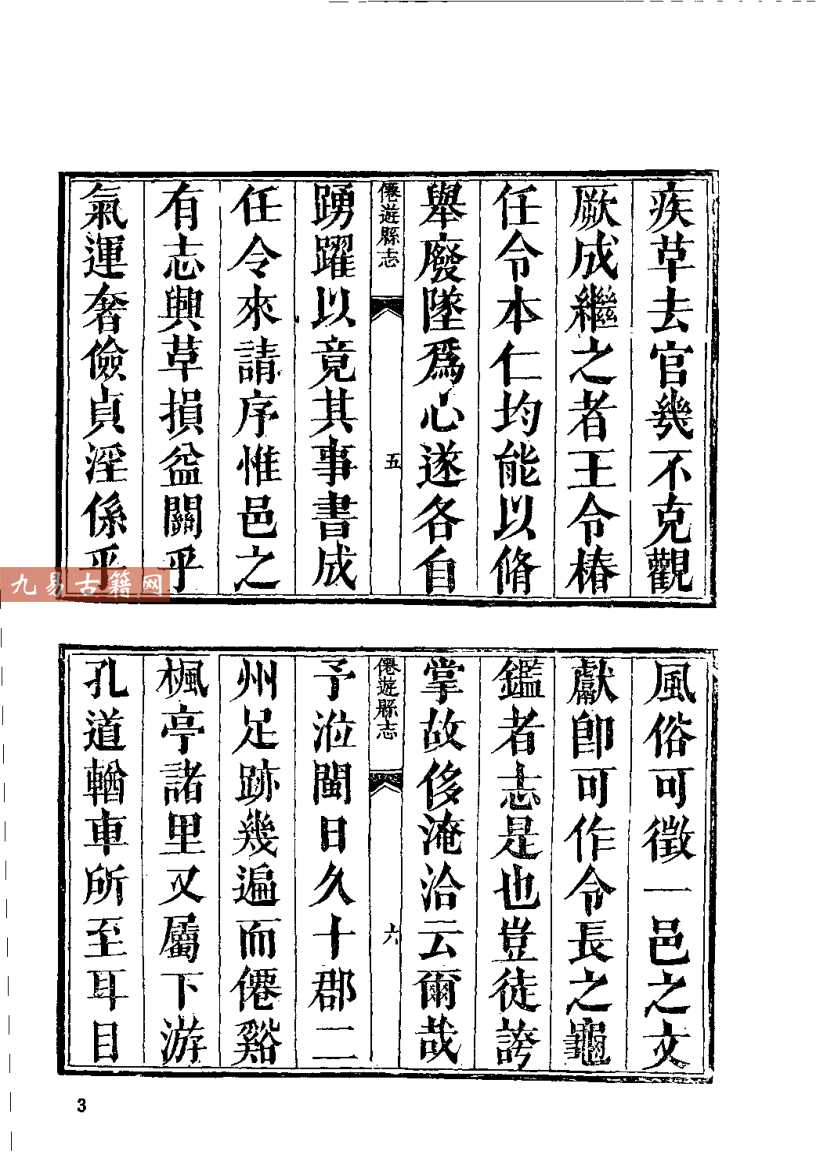 疾草去官幾不克觀
厥成繼之者王令椿
任令本仁均能以脩
舉廢墜爲心遂各自
僊遊縣志
五
踴躍以竟其事書成
任令來請序惟邑之
有志興革損益關乎
氣運奢儉貞淫係乎
風俗可徵一邑之文
獻卽可作令長之龜
鑑者志是也豈徒誇
掌故侈淹洽云爾哉
僊遊縣志
六
予涖閩日久十郡二
州足跡幾遍而僊谿
楓亭諸里又屬下游
孔道輶車所至耳目
九易古籍网
3